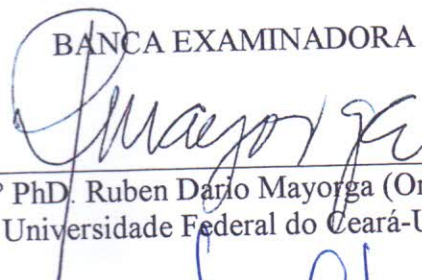 BANCA EXAMINADORA
Mayorga
º PhD. Ruben Dario Mayorga (Or
Universidade Federal do Ceará-U